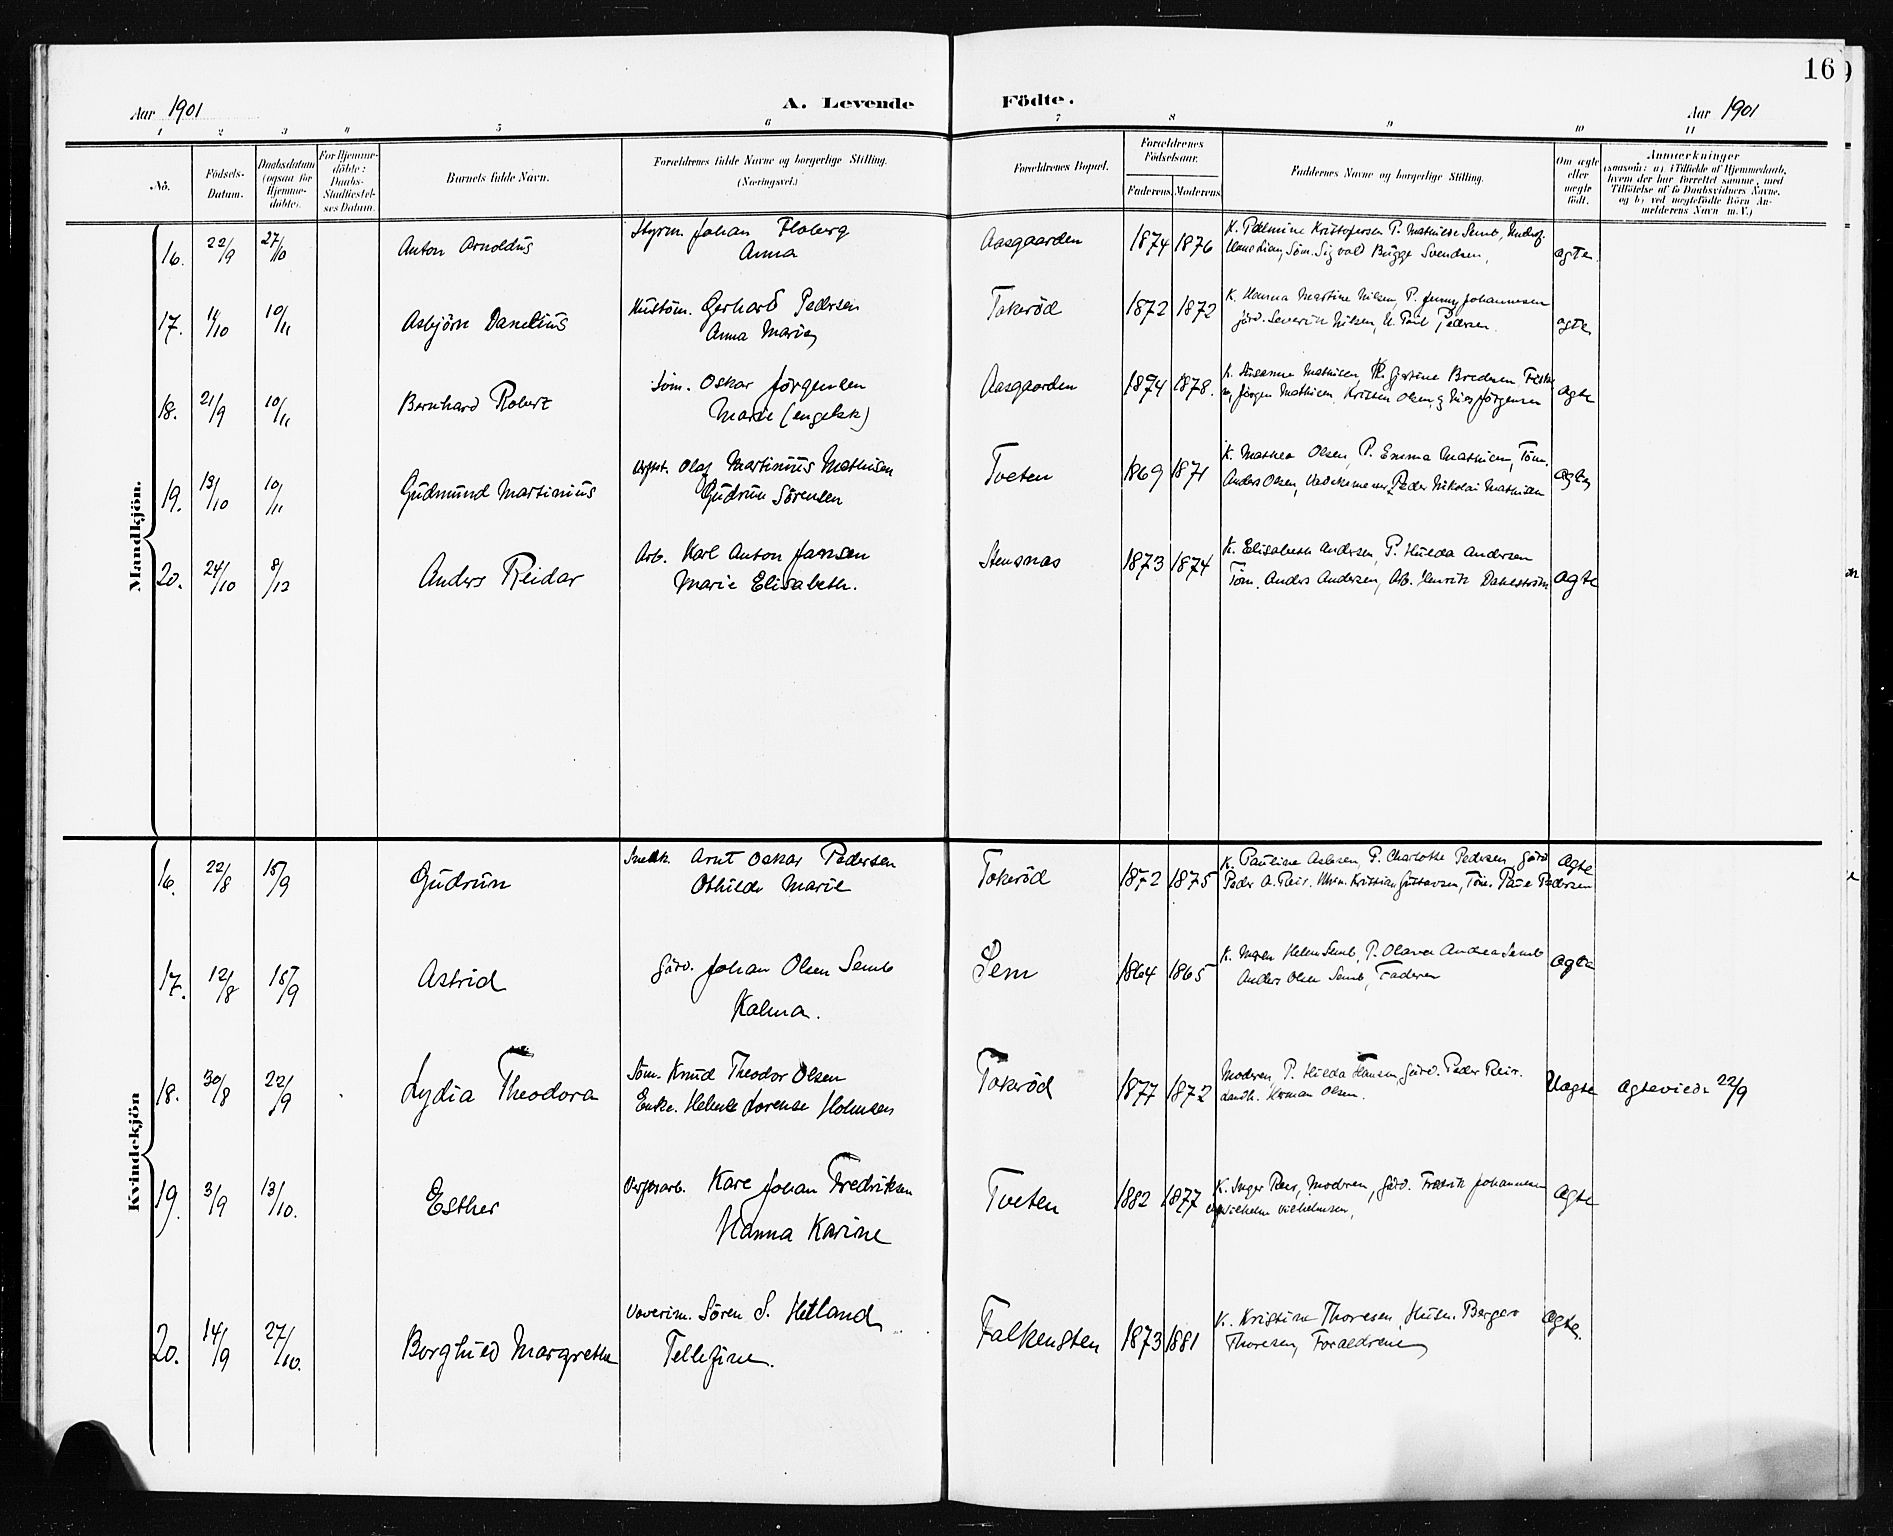 16
Aar 1901
A. Levende Födte.
Aar 1901
1 2 3 4 5 6 7 8 9 10 11
Nō.
Fōdsels-
Datum.
Daabsdatum
(ogsaa for
Hjemme-
døbte).
For Hjemme-
døbte:
Daabs-
Stadfæstel-
ses Datum.
Barnets fulde Navn.
Forældrenes fulde Navne og borgerlige Stilling.
(Næringsvei.)
Forældrenes Bopæl.
Forældrenes
Födselsaar.
Faderens. Moderens.
Faddernes Navne og borgerlige Stilling.
Om ægte
eller
uægte
født.
Anmærkninger
(saasom: a) i Tilfælde af Hjemmedaab,
hvem der har forrettet samme, med
Tilføielse af to Daabsvidners Navne,
og b) ved uægtefødte Börn An-
melderens Navn m. V.)
Mandkjön.
16. 22/9 27/10 Anton Arnoldus
Styrm. Johan Floberg
Anna
Aasgaarden 1874 1876
K. Palmine Kristofersen P. Mathilde Semb,
Søm. Sigvald Bugge Svendsen,
ægte
17. 11/10 10/11 Asbjörn Danelius
Gerhard Pedersen
Anna Marie
Tokerød 1872 1872
K. Hanna Martine Nilsen, P. Jenny Johannesen
Severin Nilsen, U. Paul Pedersen
ægte
18. 21/9 10/11 Bernhard Robert
Søm. Oskar Jørgensen
Marie (engelsk)
Aasgaarden 1874 1878.
K. Susanne Mathisen, P. Gjertine Bredesen
Jørgen Mathisen, Kristen Olsen, Jørgensen
ægte
19. 13/10 10/11 Gudmund Martinius
Olaf Martinius Mathisen
Gudrun Sørensen
Tveten 1869 1871
K. Mathea Olsen, P. Emma Mathisen, Tøm.
Anders Olsen, Peder Nikolai Mathisen
ægte
20. 24/10 8/12 Anders Reidar
Arb. Karl Anton Jansen
Marie Elisabeth.
Stensnas 1873 1874
K. Elisabeth Andersen, P. Hulda Andersen
Tøm. Anders Andersen, Arb. Henrik Dahlstrøm
ægte
Kvindekjön
16. 22/8 15/9 Gudrun
Snedk. Arnt Oskar Pedersen
Othilde Marie
Tokerød 1872 1875
K. Pauline Aslesen, P. Charlotte Pedersen, Gård.
Peder A. Reir. Kristian Gustavsen, Tøm. Paul Pedersen
ægte
17. 12/8 15/9 Astrid
Gård. Johan Olsen Semb
Kalma.
Sem 1864 1865
K. Maren Helene Semb, P. Olava Andrea Semb
Anders Olsen Semb, Faderen
ægte
18. 30/8 22/9 Lydia Theodora
Søm. Knud Theodor Olsen
Enke. Helene Lorense Holmsen
Tokerød 1877 1872
Moderen, P. Hulda Hansen, Gård. Peder Reir.
Landh. Herman Olsen.
Uægte ægteviede 22/9
19. 3/9 13/10. Esther
Verftsarb. Karl Johan Fredriksen
Hanna Karine
Tveten 1882 1877
K. Inger Reir, Moderen, Gård. Fredrik Johannesen
Vilhelm Vilhelmsen,
ægte
20. 14/9 27/10. Borghild Margrethe
Sören S. Hetland
Tellefine.
Falkensten 1873 1881
K. Kristine Thoresen, Husm. Berger
Thoresen, Forældrene
ægte